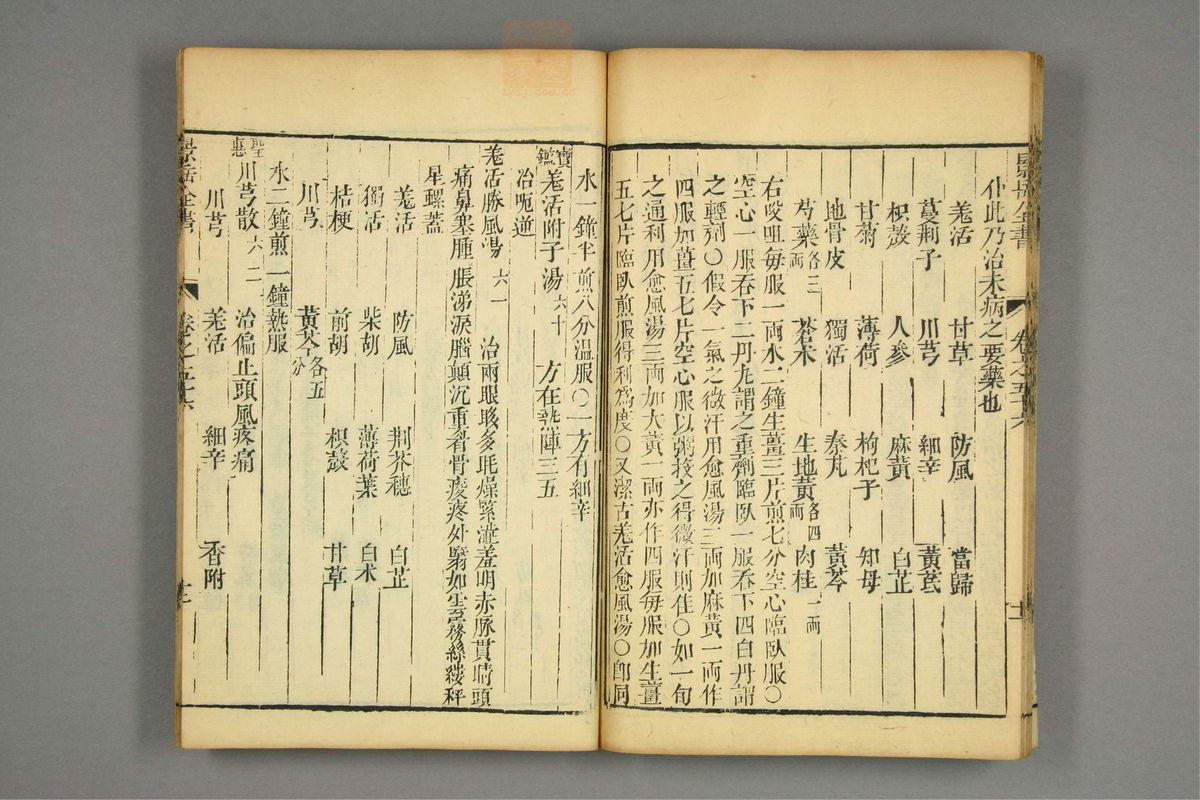 景岳全書 卷之五十六
仆此乃治未病之要藥也
羗活 甘草 防風 當歸
蔓荆子 川芎 細辛 黃芪
枳殼 人參 麻黃 白芷
甘菊 薄荷 枸杞子 知母
地骨皮 獨活 秦艽 黃芩
芍藥各三兩 蒼术 生地黃各四兩 肉桂一兩
右㕮咀每服一兩水二鐘生薑三片煎七分空心臨臥服○
空心一服吞下二丹丸謂之重劑臨臥一服吞下四白丹謂
之輕劑○假令一氣之微汗用愈風湯三兩加麻黃一兩作
四服加薑五七片空心服以粥投之得微汗則佳○如一旬
之通利用愈風湯三兩加大黃一兩亦作四服每服加生薑
五七片臨臥煎服得利爲度○又潔古羗活愈風湯○卽同
水一鐘半煎八分溫服○一方有細辛
寶鑑羗活附子湯六十 方在熱陣三五
治呃逆
羗活勝風湯 六一 治兩眼眵多眊燥緊澁羞明赤脉貫睛頭
痛鼻塞腫脹涕淚腦巔沉重眉骨痠疼外翳如雲霧絲縷秤
星螺蓋
羗活 防風 荆芥穗 白芷
獨活 柴胡 薄荷葉 白术
桔梗 前胡 枳殼 甘草
川芎 黃芩各五分
水二鐘煎一鐘熱服
聖惠川芎散六二 治偏正頭風疼痛
川芎 羗活 細辛 香附
景岳全書 卷之五十六
zyqj.com.cn